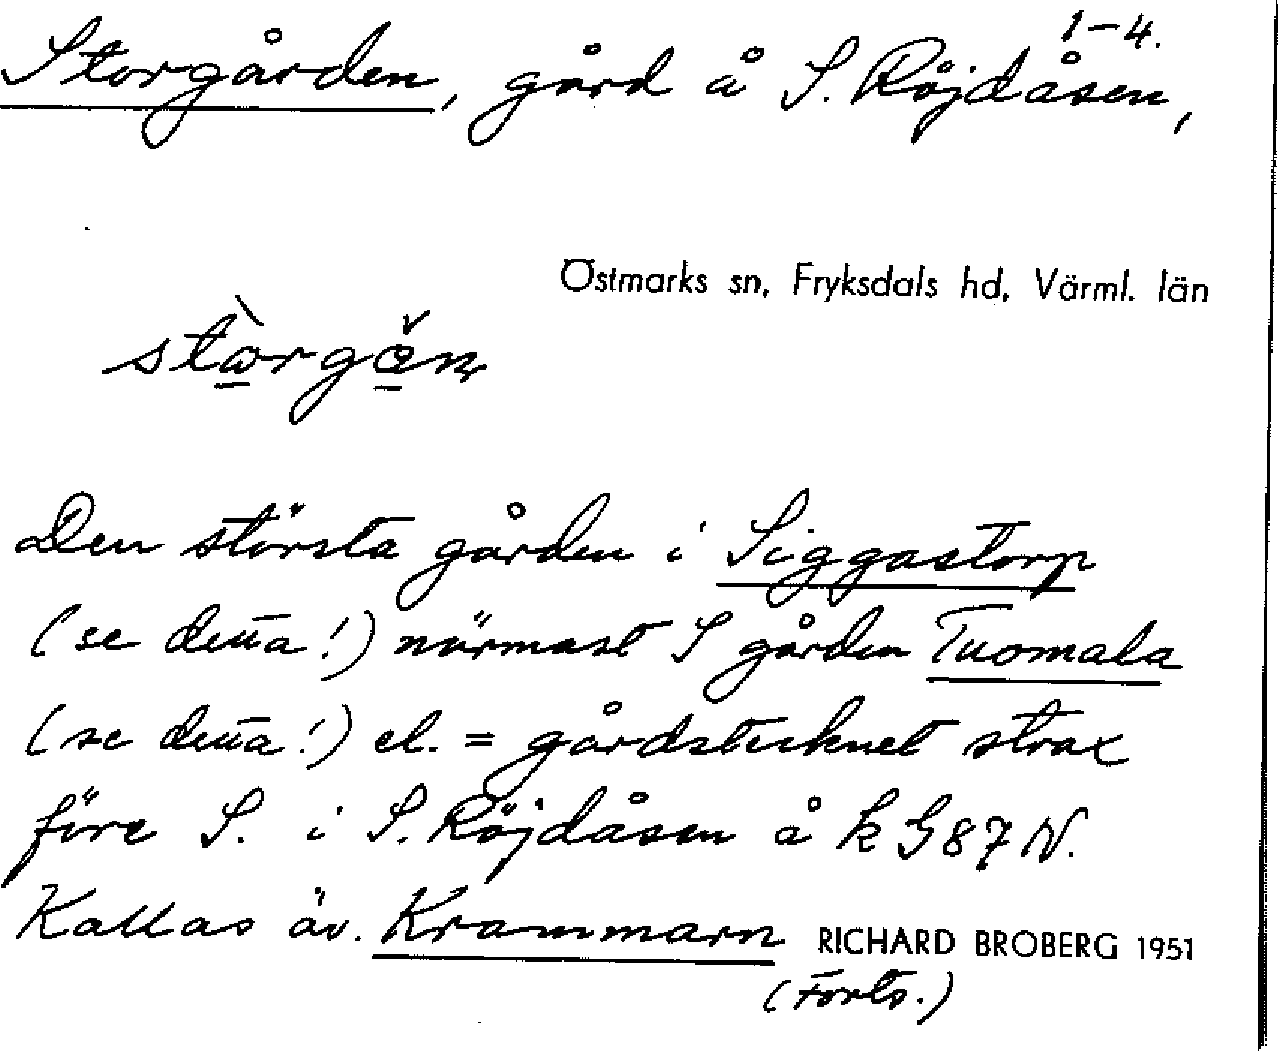 1-4.
Storgården, gård å S. Röjdåsen,
Östmarks sn, Fryksdals hd, Värml. län
Den största gården i Siggastorp
(se detta!) närmast S gården Tuomala
(se detta!) el. = gårdstecknet strax
före S. i S. Röjdåsen å k G 87 N.
Kallas äv. Krammarn RICHARD BROBERG 1951
(Forts.)